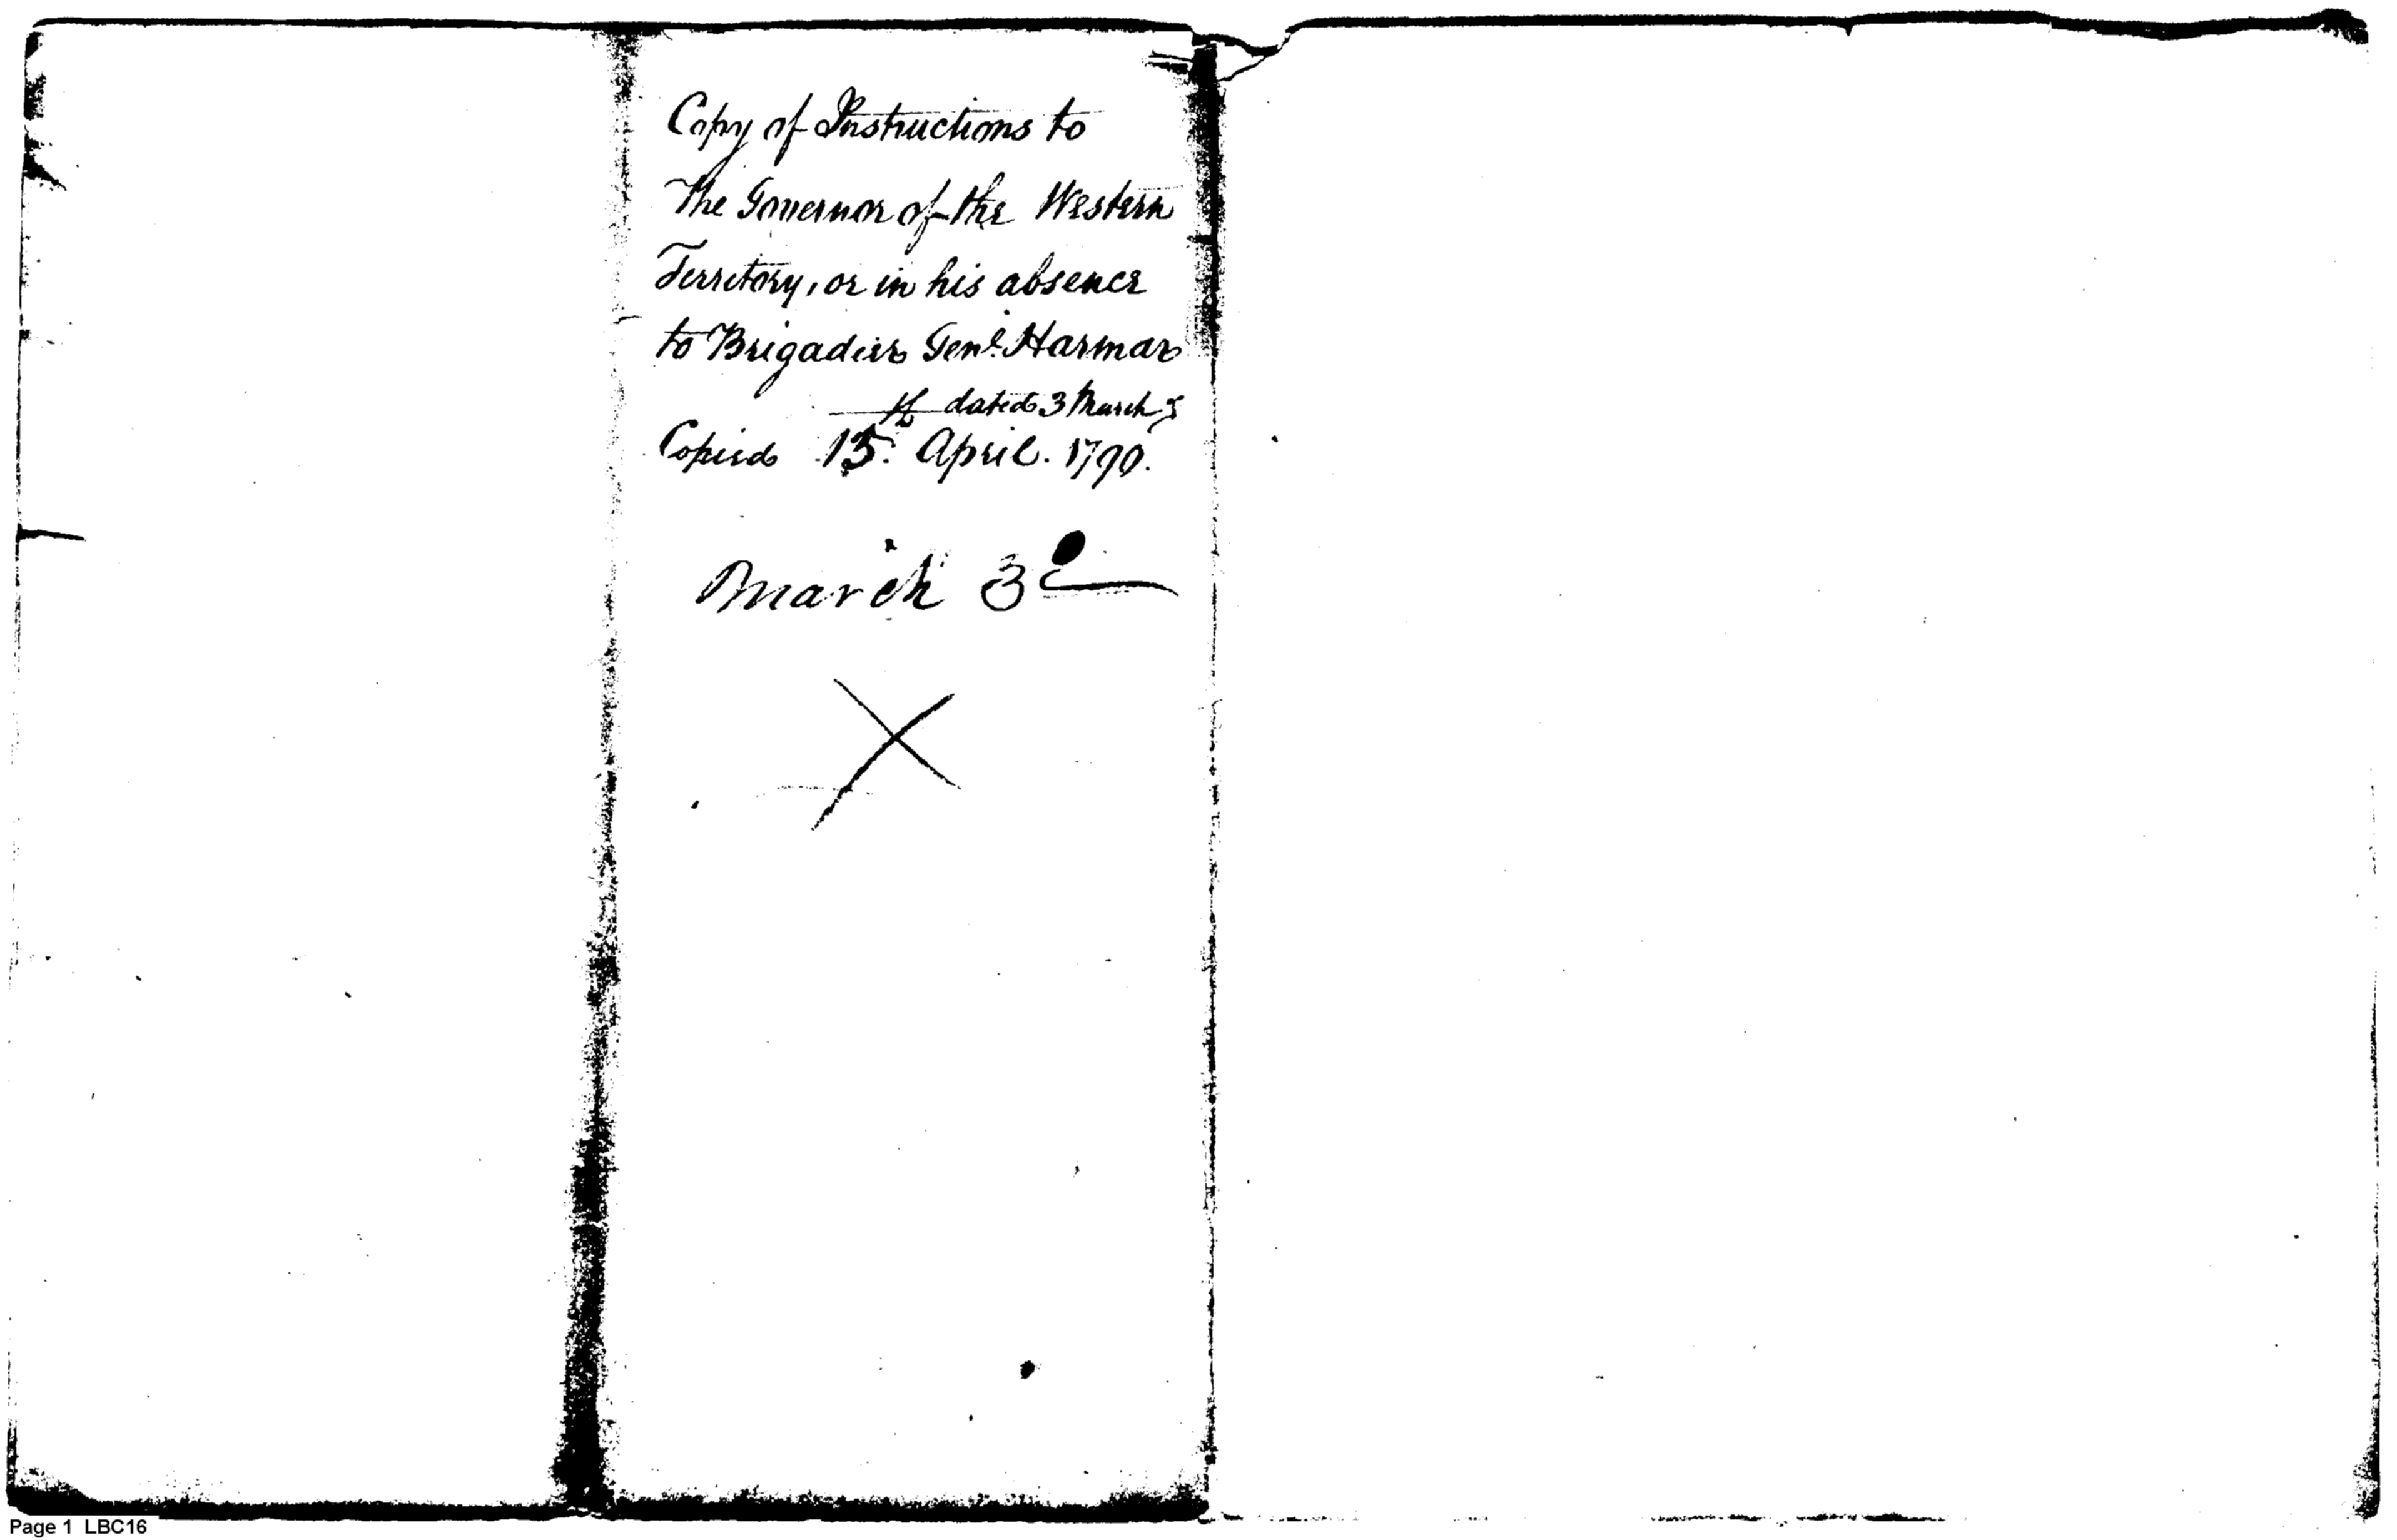 Copy of Instructions to
The Governor of the Western
Territory, or in his absence
to Brigadier Genl. Harmar
dated 3 March
Copied 15th. April. 1790.
March 3d
Page 1 LBC16